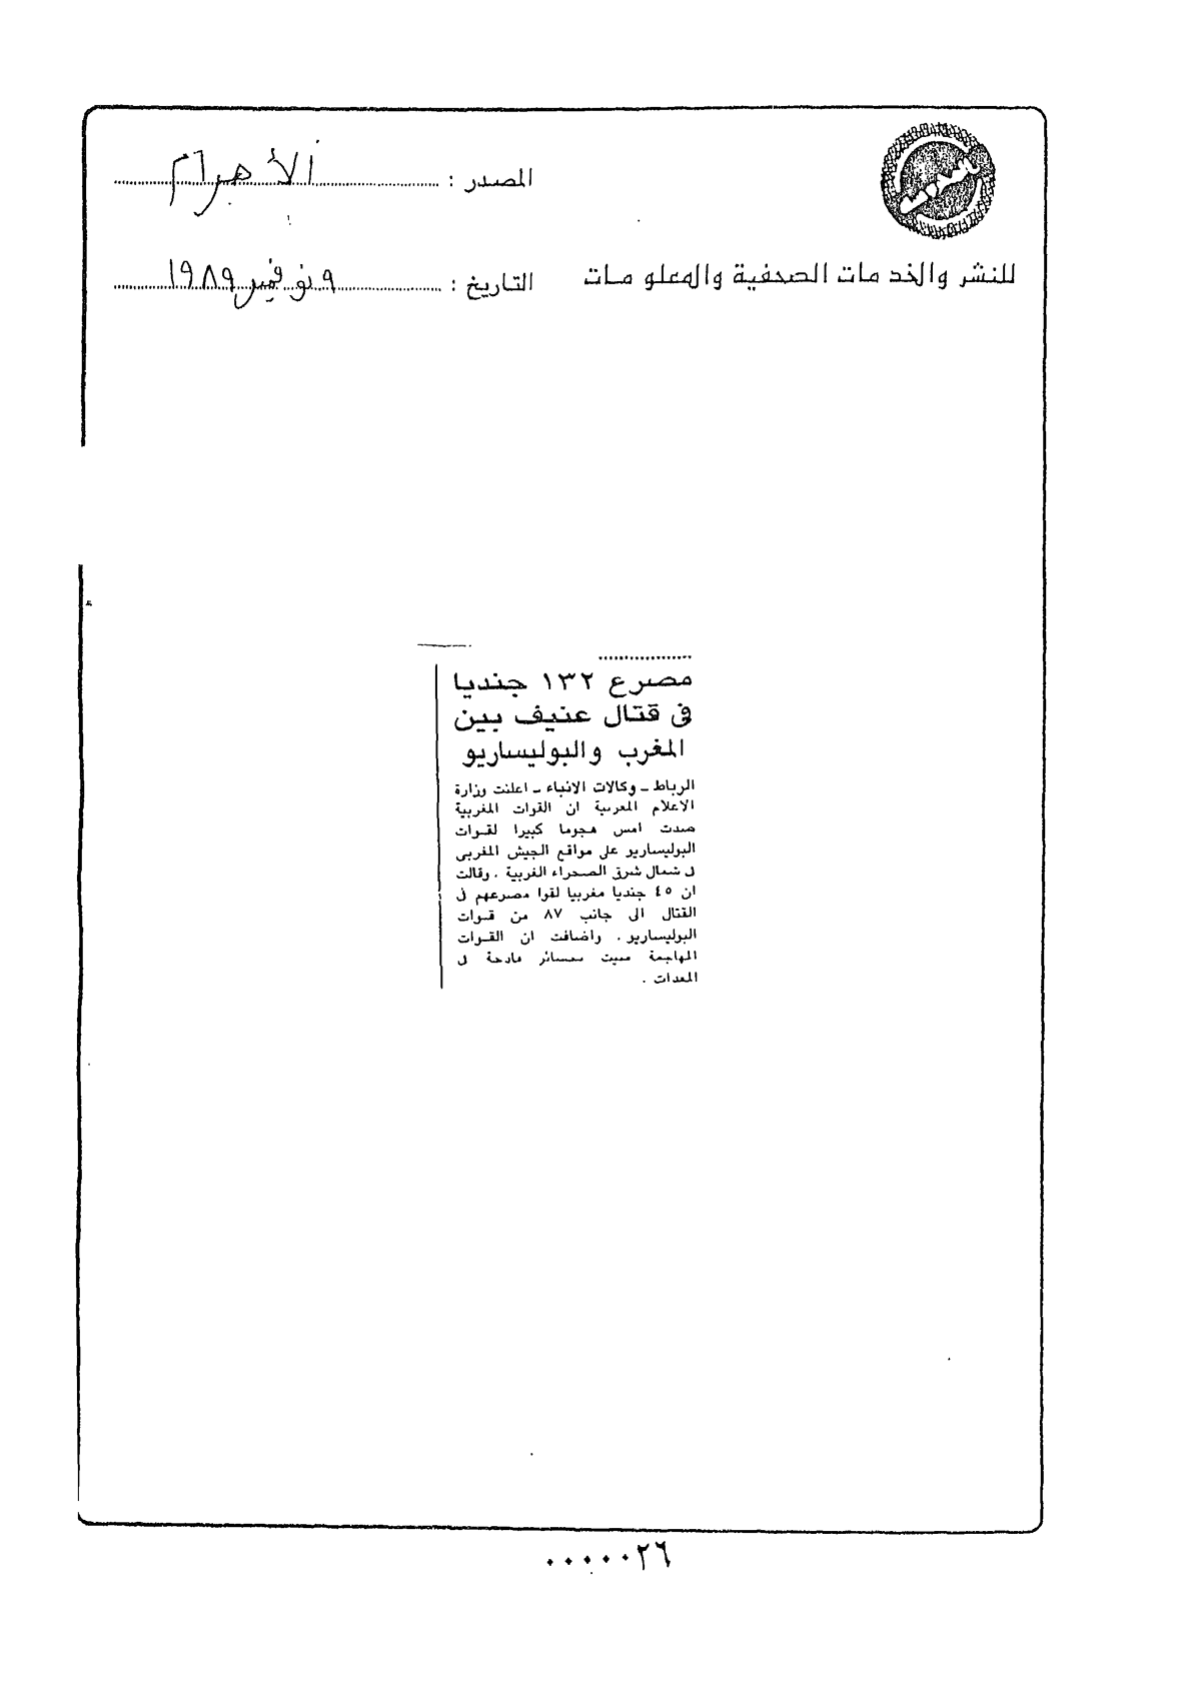 المصدر : الأهرام
للنشر والخدمات الصحفية والمعلومات
التاريخ : ٩ نوفمبر ١٩٨٩
مصرع ١٣٢ جنديا
فى قتال عنيف بين
المغرب والبوليساريو
الرباط ـ وكالات الانباء ـ اعلنت وزارة
الاعلام المغربية ان القوات المغربية
صدت امس هجوما كبيرا لقوات
البوليساريو على مواقع الجيش المغربى
فى شمال شرق الصحراء الغربية . وقالت
ان ٤٥ جنديا مغربيا لقوا مصرعهم فى
القتال الى جانب ٨٧ من قوات
البوليساريو . واضافت ان القوات
المهاجمة منيت بخسائر فادحة فى
المعدات .
٠٠٠٠٠٢٦